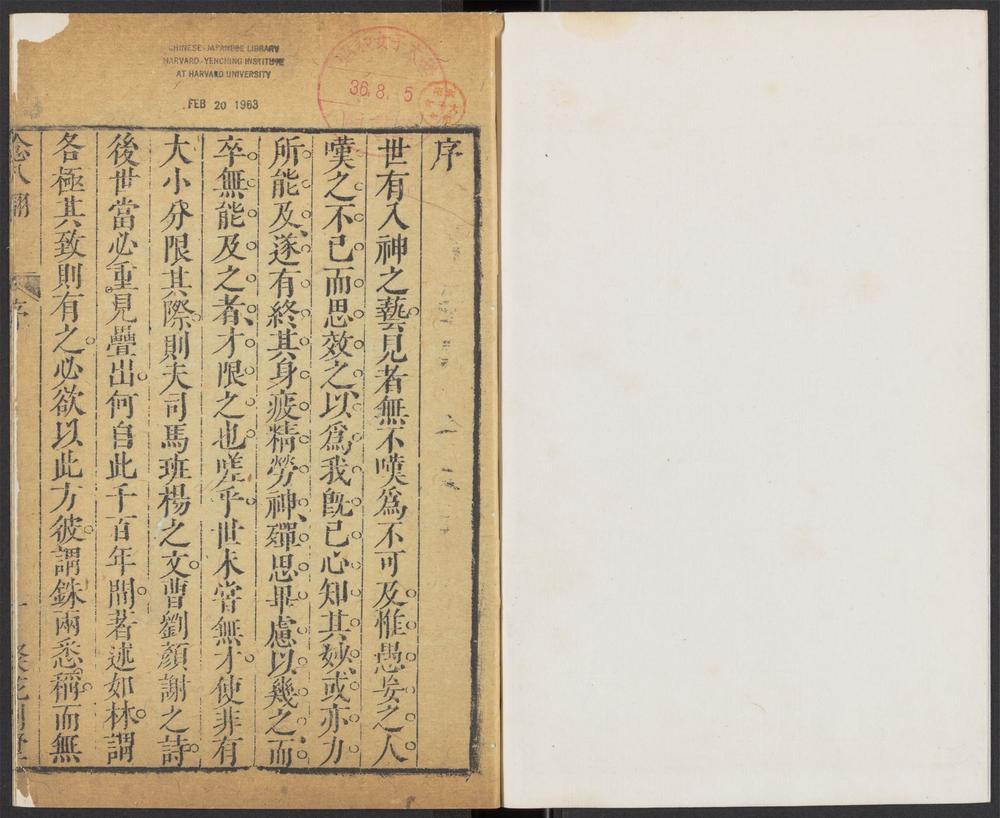 CHINESE-JAPANESE LIBRARY
HARVARD-YENCHING INSTITUTE
AT HARVARD UNIVERSITY
FEB 20 1963
36.8.5
序
世有入神之藝見者無不嘆爲不可及惟愚妄之人
嘆之不已而思效之以爲我旣已心知其妙或亦力
所能及遂有終其身疲精勞神殫思畢慮以幾之而
卒無能及之者才限之也嗟乎世未嘗無才使非有
大小分限其際則夫司馬班楊之文曹劉顏謝之詩
後世當必重見疊出何自此千百年間著述如林謂
各極其致則有之必欲以此方彼謂銖兩悉稱而無
序